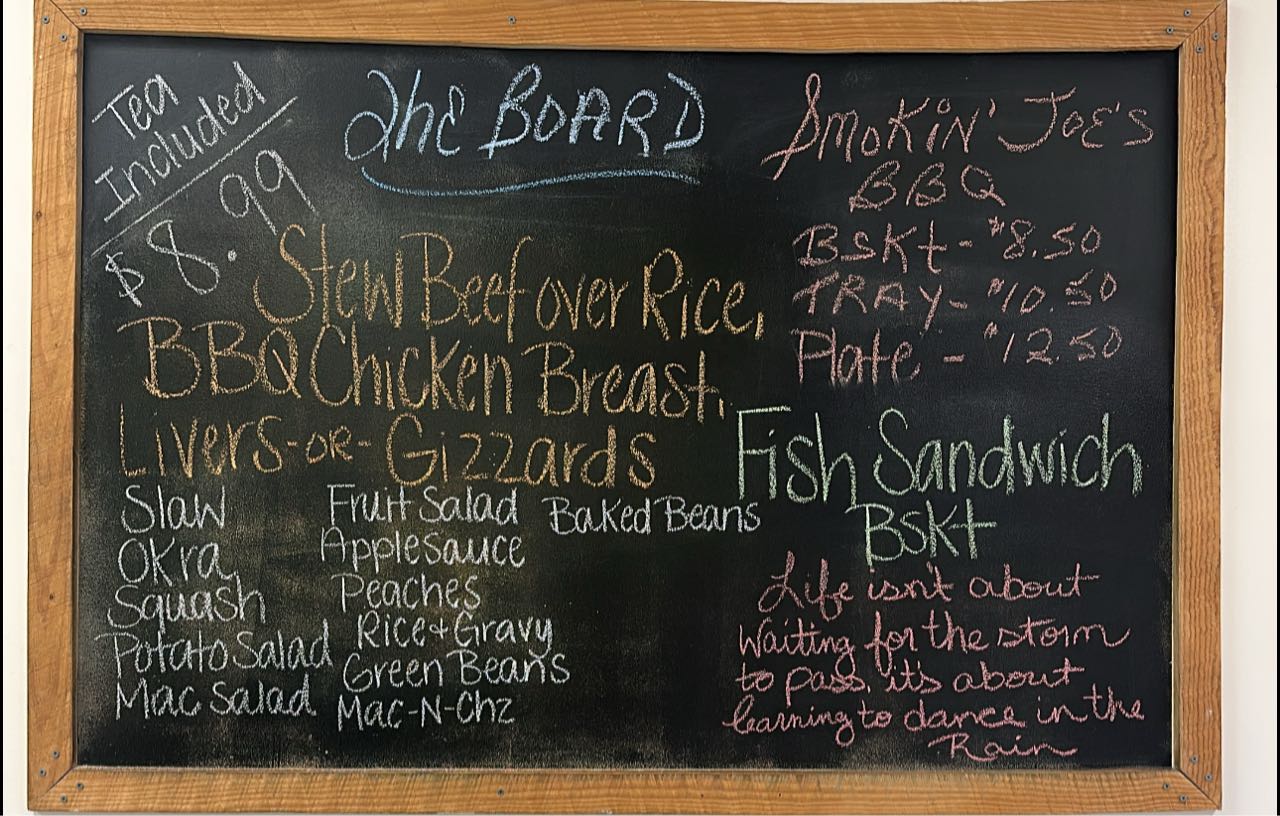 Tea
Included
$8.99
The BOARD
Stew Beef over Rice,
BBQ Chicken Breast,
Livers-OR-Gizzards
Slaw
Okra
Squash
Potato Salad
Mac Salad
Fruit Salad
Applesauce
Peaches
Rice+Gravy
Green Beans
Mac-N-Chz
Baked Beans
SMOKiN' JOE'S
BBQ
BSKt - $8.50
TRAY - $10.50
Plate - $12.50
Fish Sandwich
BSKt
Life isn't about
Waiting for the storm
to pass, it's about
learning to dance in the
Rain